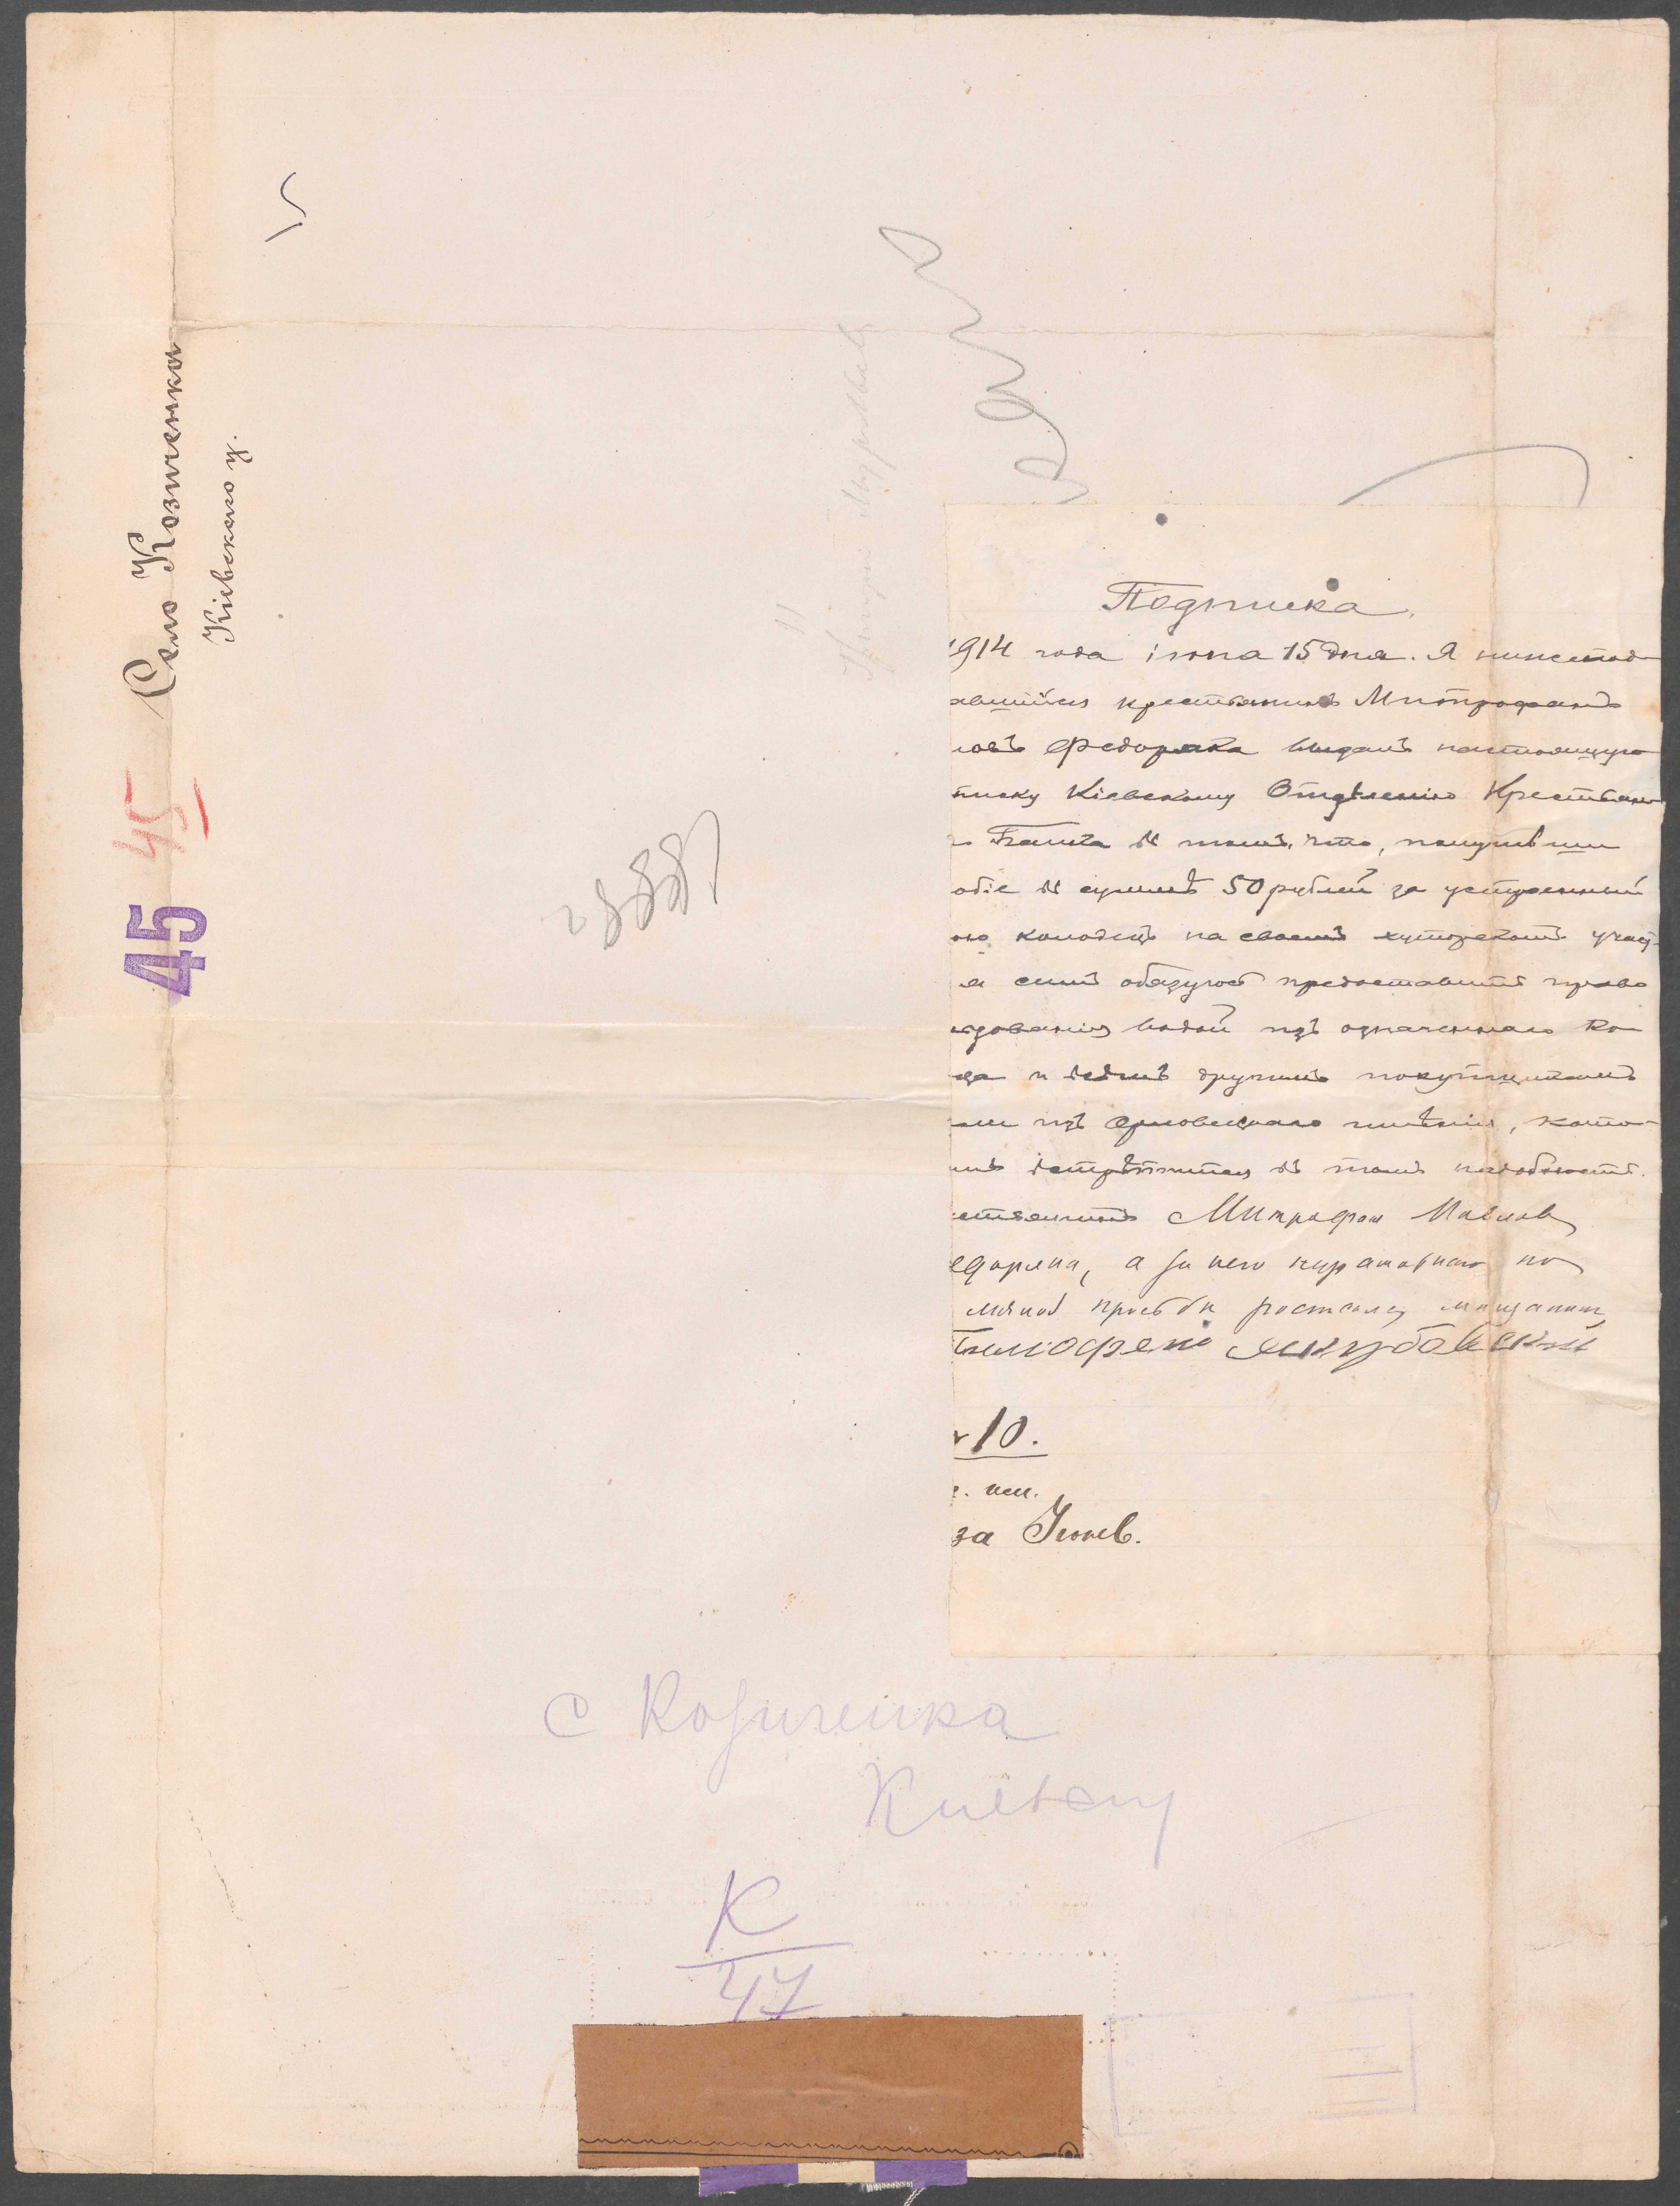 Село Козиченка
Кіевскаго у.
45
45
Подписка.
1914 года іюня 15 дня. Я нижепод-
авшійся крестьянинъ Митрофанъ
ловъ Федоряка выдалъ настоящую
писку Кіевскому Отдѣленію Крестьянс
о Банка въ томъ, что, получивши
обіе въ суммѣ 50 рублей за устроенный
ою колодецъ на своемъ хуторскомъ участ-
я симъ обязуюсь предоставить право
ьзованія водой изъ означеннаго ко-
ца и всѣмъ другимъ покупщикамъ
ли изъ имѣнія, кото-
мъ встрѣтится въ томъ надобность.
естьянинъ Митрофан Павлов
едоряка, а за него неграмотнаго по
личной просьби росписался мещанин
Тимофей Якубовский
10.
за
с Козиченка
Киевску
К
47